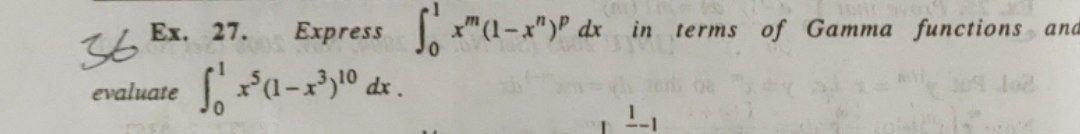 36 Ex. 27. Express ∫₀¹ xᵐ(1−xⁿ)ᵖ dx in terms of Gamma functions and
evaluate ∫₀¹ x⁵(1−x³)¹⁰ dx.
1 1/ −1